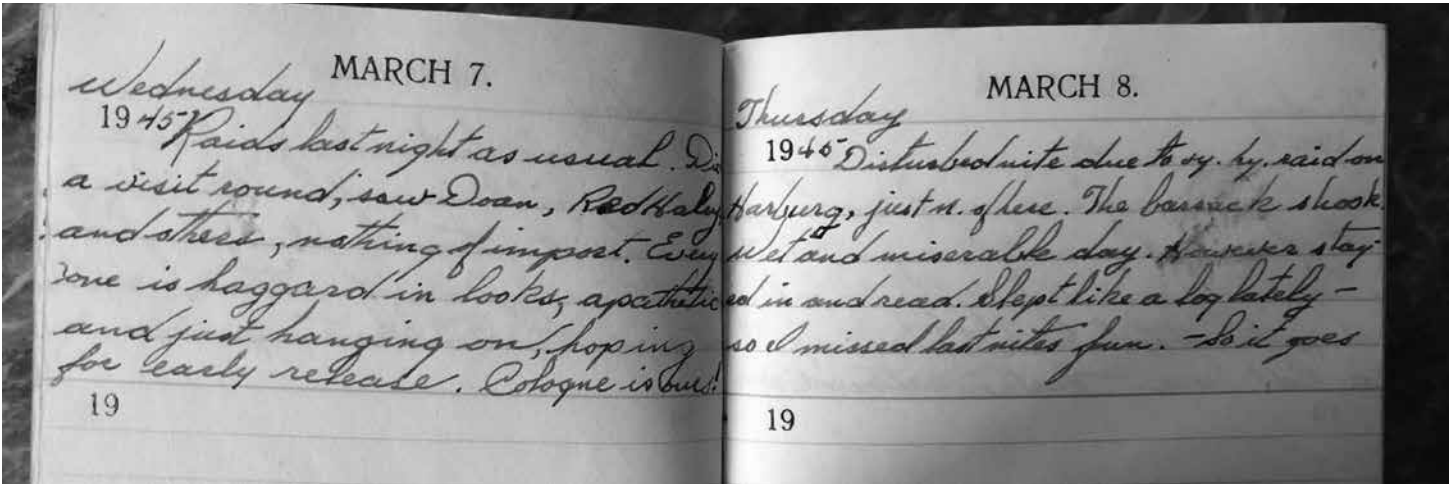 MARCH 7.
Wednesday
1945 Raids last night as usual. Did
a visit round, saw Doan, Red
and others, nothing of import. Every
one is haggard in looks, apathetic
and just hanging on, hoping
for early release. Cologne is ours!
19
MARCH 8.
Thursday
1945 Disturbed nite due to hy. raid on
Harburg, just n. of here. The barrack shook.
Wet and miserable day. However stay-
ed in and read. Slept like a log lately -
so I missed last nites fun. - So it goes
19